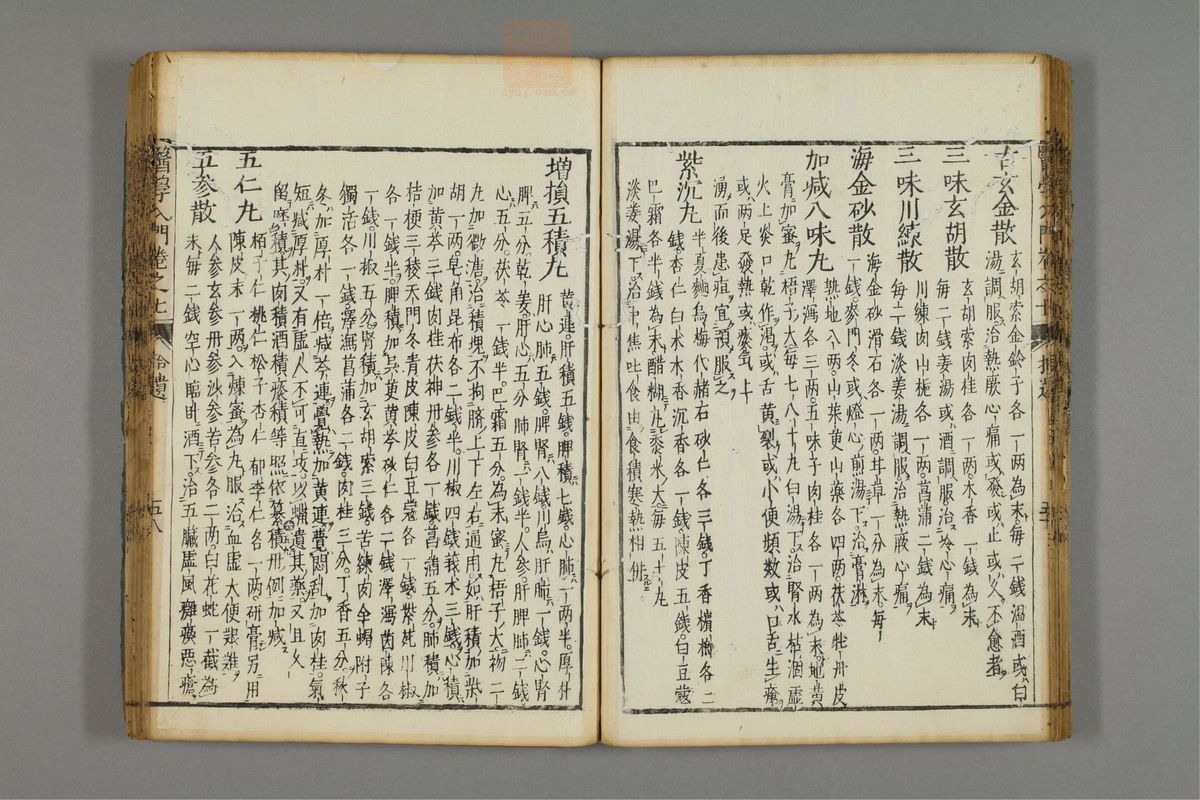 古玄金散 玄胡索金鈴子各一两為末毎二錢温酒或白
湯調服治熱厥心痛或發或止或久不愈者
三味玄胡散 玄胡索肉桂各一两木香一錢為末
毎二錢姜湯或酒調服治冷心痛
三味川練散 川練肉山梔各一两菖蒲二錢為末
毎二錢淡姜湯調服治熱厥心痛
海金砂散 海金砂滑石各一两甘草一分為末毎
一錢麥門冬或燈心煎湯下治膏淋
加减八味九 熟地八两山茱萸山藥各四两茯苓牡丹皮
澤瀉各三两五味子肉桂各一两為末地黄
膏加蜜九梧子大毎七八十九白湯下治腎水枯涸虚
火上炎口乾作渴或舌黄裂或小便頻数或口舌生瘡
或两足發熱或痰氣上
湧而後患疽宜預服之
紫沉九 半夏麯烏梅代赭石砂仁各三錢丁香檳榔各二
錢杏仁白术木香沉香各一錢陳皮五錢白豆蔻
巴霜各半錢為末醋糊九黍米大毎五十九
淡姜湯下治中焦吐食由食積寒熱相併
增損五積九 黄連肝積五錢脾積七錢心肺一两半厚朴
肝心肺五錢脾腎八錢川烏肝肺一錢心腎
脾五分乾姜肝心五分肺腎一錢半人参肝脾肺二錢
心五分茯苓一錢半巴霜五分為末蜜九梧子大初二
九加微溏治積塊不拘臍上下左右通用如肝積加柴
胡一两皂角昆布各二錢半川椒四錢莪术三錢心積
加黄芩三錢肉桂茯神丹参各一錢菖蒲五分肺積加
桔梗三稜天門冬青皮陳皮白豆蔻各一錢紫苑川椒
各一錢半脾積加吳茱黄芩砂仁各二錢澤瀉茵陳各
一錢川椒五分腎積加玄胡索三錢苦練肉全蝎附子
獨活各一錢澤瀉菖蒲各二錢肉桂三分丁香五分秋
冬加厚朴一倍减芩連覺熱加黄連覺悶乱加肉桂氣
短减厚朴又有虚人不可直攻以蝋匱其藥又且久
留磨積其肉積酒積痰積等照依纂積丹例加减
五仁九 柏子仁桃仁松子杏仁郁李仁各一两研膏另用
陳皮末一两入煉蜜為九服治血虚大便艱難
五参散 人参玄参丹参沙参苦参各二两白花蛇一截為
末毎二錢空心臨卧酒下治五臟虚風癱瘓惡瘡
醫學入門卷之七 拾遺 五八